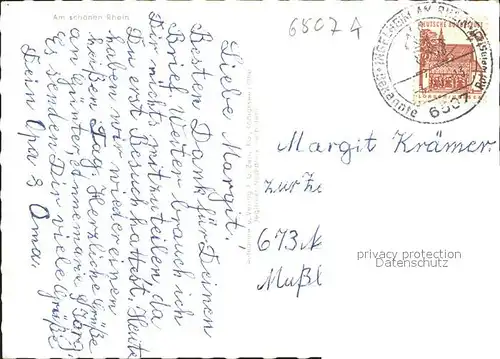 Am schönen Rhein
6507 A
DEUTSCHE BUNDESPOST
INGELHEIM AM RHEIN
Bekannte
Rot
6507
LORSCH
Liebe Margit!
Besten Dank für Deinen
Brief. Weiter brauch ich
Dir nichts mitzuteilen, da
Du erst Besuch hattest. Heute
haben wir wieder einen
heißen Tag. Herzliche Grüße
an Günter, Annemarie u
Es senden Dir viele Grüße
Dein Opa & Oma.
Margit Krämer
zur Ze
673 N
Mußl
privacy protection
Datenschutz